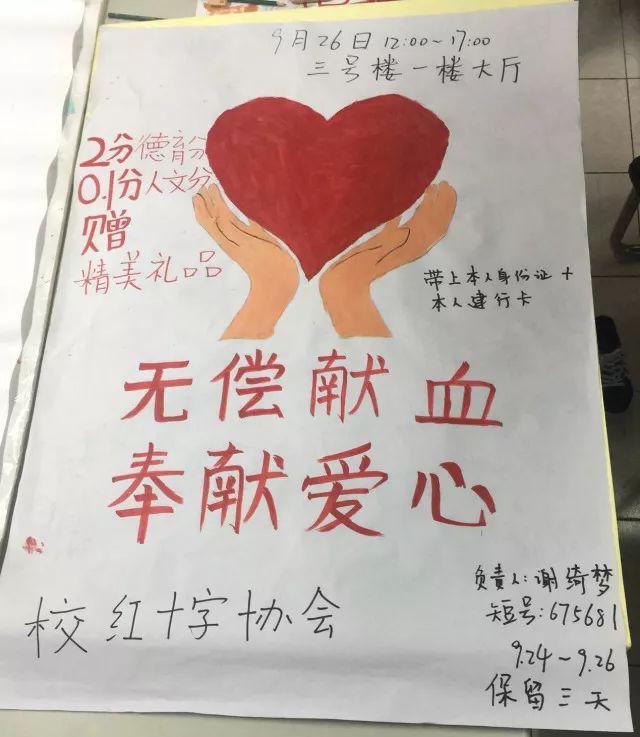 9月26日 12:00~17:00
三号楼一楼大厅
2分德育分
0.1分人文分
赠
精美礼品
带上本人身份证+
本人建行卡
无偿献血
奉献爱心
校红十字协会
负责人:谢绮梦
短号:675681
9.24-9.26
保留三天